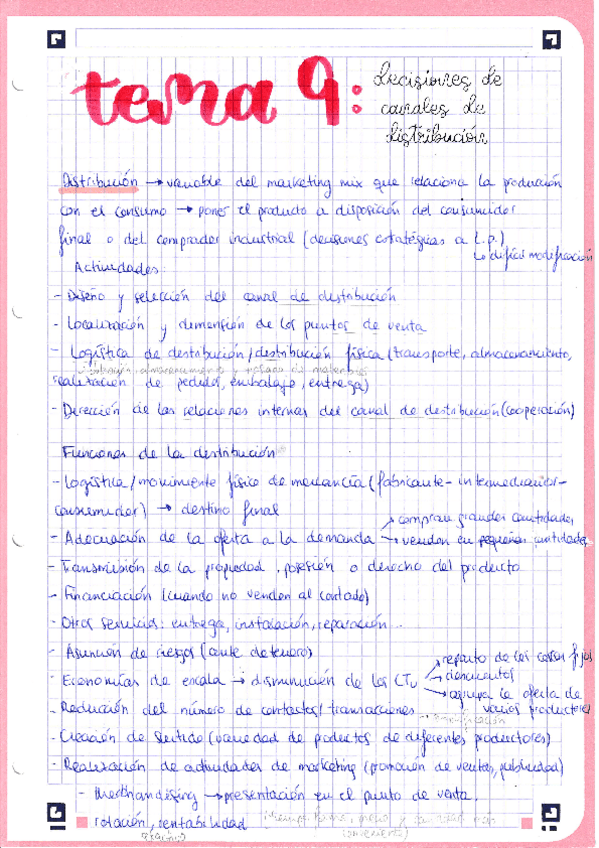 tema 9: decisiones de
canales de
distribución
Distribución → variable del marketing mix que relaciona la producción
con el consumo → poner el producto a disposición del consumidor
final o del comprador industrial (decisiones estratégicas a l.p.)
↳ difícil modificación
Actividades:
- Diseño y selección del canal de distribución
- Localización y dimensión de los puntos de venta
- Logística de distribución/distribución física (transporte, almacenamiento,
realización de pedidos, embalaje, entrega)
- Dirección de las relaciones internas del canal de distribución (cooperación)
Funciones de la distribución
- Logística/movimiento físico de mercancía (fabricante-intermediarios-
consumidor) → destino final
- Adecuación de la oferta a la demanda → compran grandes cantidades
→ venden en pequeñas cantidades
- Transmisión de la propiedad, posesión o derecho del producto
- Financiación (cuando no venden al contado)
- Otros servicios: entrega, instalación, reparación...
- Asunción de riesgos (ante deterioro)
- Economías de escala → disminución de los CTu → reparto de los costes fijos
→ descuentos
→ agrupa la oferta de
varios productores
- Reducción del número de contactos/transacciones
- Creación de surtido (variedad de productos de diferentes productores)
- Realización de actividades de marketing (promoción de ventas, publicidad)
- Merchandising → presentación en el punto de venta,
rotación, rentabilidad